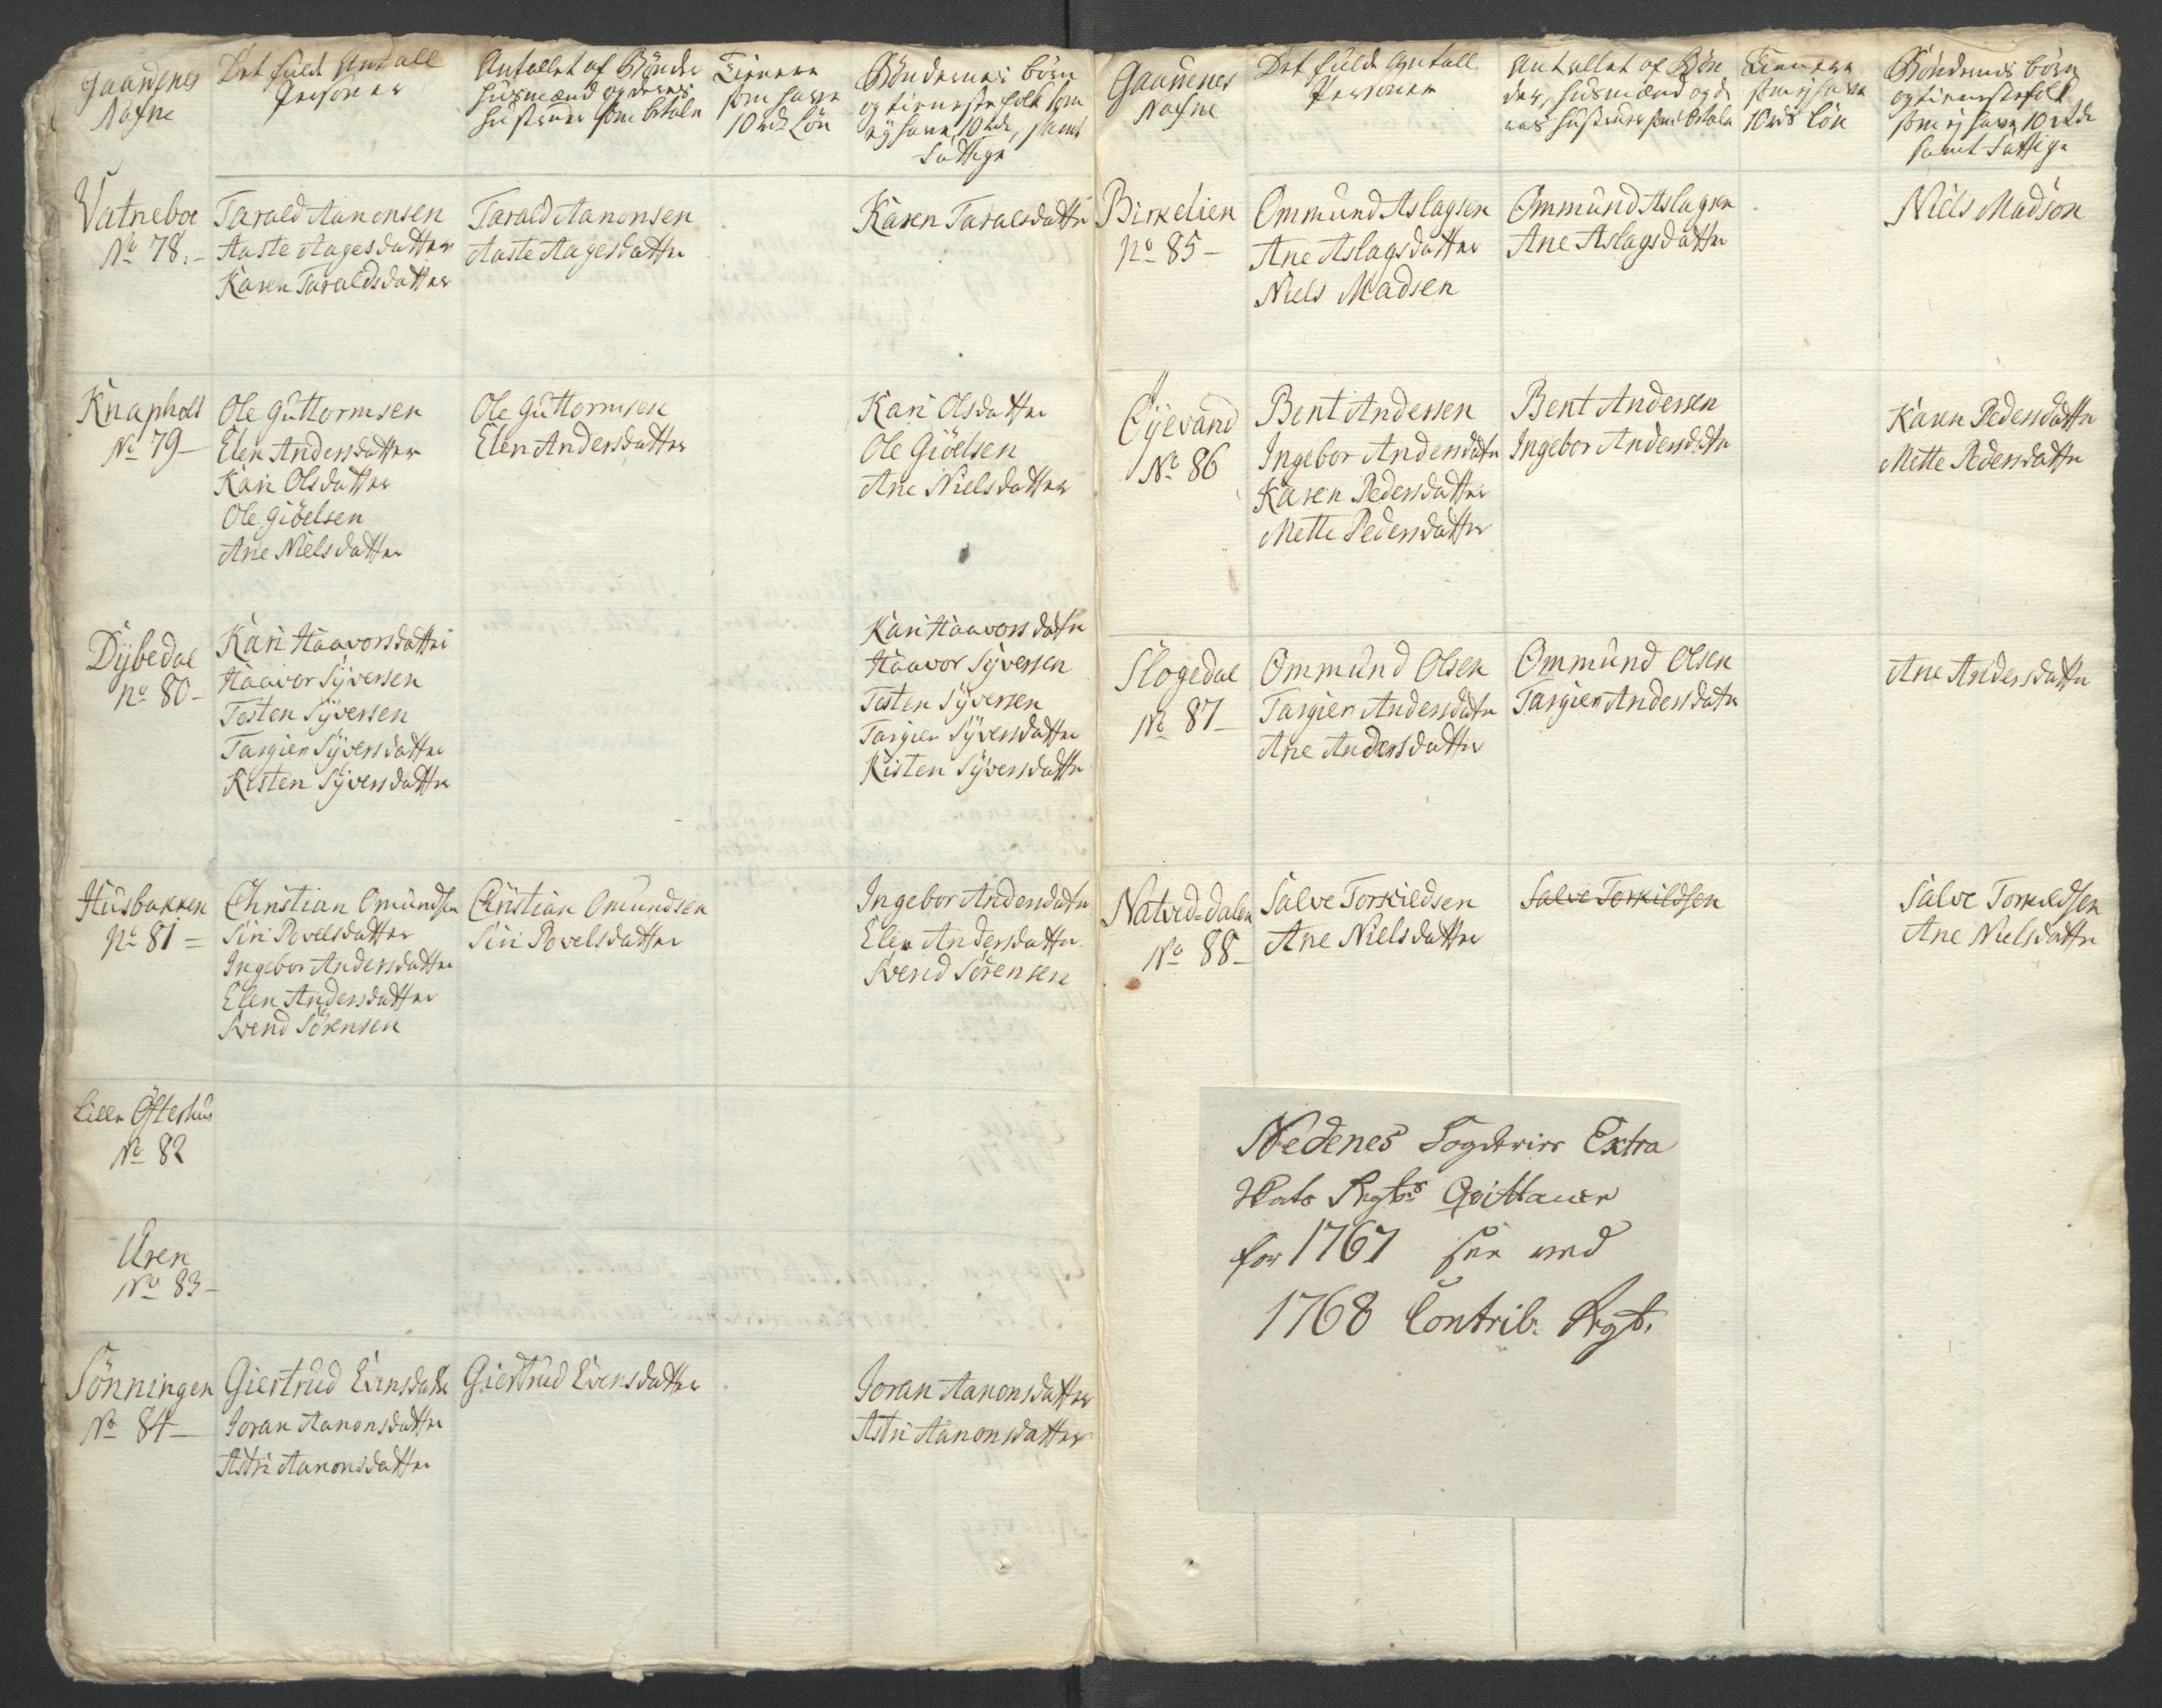 Gaardenes
Nafne
Det fulde Antall
Personer
Antallet af Bönder
husmænd og deres
hustruer som betale
Tienere
som have
10 rdr Lön
Böndernes börn
og tienestefolk som
ey have 10 rdr, samt
fattige
Vatneboe
No 78.
Tarald Aanonsen
Aaste Aagesdatter
Karen Taraldsdatter
Tarald Aanonsen
Aaste Aagesdatter
Karen Taraldsdatter
Knapholt
No 79
Ole Guttormsen
Elen Andersdatter
Kari Olsdatter
Ole Giöelsen
Ane Nielsdatter
Ole Guttormsen
Elen Andersdatter
Kari Olsdatter
Ole Giöelsen
Ane Nielsdatter
Dybedal
no 80
Kari Haavorsdatter
Haavor Syversen
Testen Syversen
Targier Syversdatter
Kisten Syversdatter
Kari Haavorsdatter
Haavor Syversen
Testen Syversen
Targier Syversdatter
Kisten Syversdatter
Husbakken
No 81
Christian Omundsen
Siri Povelsdatter
Ingebor Andersdatter
Elen Andersdatter
Svend Sörensen
Christian Omundsen
Siri Povelsdatter
Ingebor Andersdatter
Elen Andersdatter
Svend Sörensen
Lille Ofteshus
No 82
Uren
No 83
Tönningen
No 84
Giertrud Evensdatter
Joran Aanonsdatter
Astri Aanonsdatter
Giertrud Evensdatter
Joran Aanonsdatter
Astri Aanonsdatter
Gaardenes
Nafne
Det fulde Antall
Personer
Antallet af Bön
der, husmænd og de
res hustruer som betale
Tienere
som have
10 rdr Lön
Böndernes börn
og tienestefolk
som ej have 10 rdr
samt fattige
Birkelien
No 85
Ommund Aslagsen
Ane Aslagsdatter
Niels Madsen
Ommund Aslagsen
Ane Aslagsdatter
Niels Madson
Öyevand
No 86
Bent Andersen
Ingebor Andersdatter
Karen Pedersdatter
Mette Pedersdatter
Bent Andersen
Ingebor Andersdatter
Karen Pedersdatter
Mette Pedersdatter
Slogedal
No 87
Ommund Olsen
Targier Andersdatter
Ane Andersdatter
Ommund Olsen
Targier Andersdatter
Ane Andersdatter
Natved-dalen
No 88
Salve Torkildsen
Ane Nielsdatter
Salve Torkildsen
Salve Torkildsen
Ane Nielsdatter
Nedenes Fogderies Extra
Skats Rgbs Qvittancer
for 1767 see ved
1768 Contrib. Rgb.